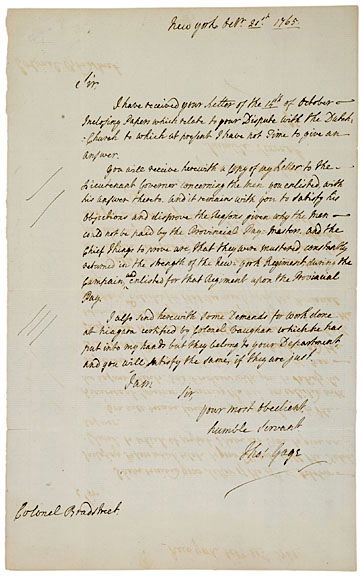 New York Octr. 21st. 1765
Sir.
I have received your Letter of the 14th of October
Inclosing Papers which relate to your Dispute with the Dutch
Church to which at present I have not Time to give an
answer.
You will receive herewith a Copy of my Letter to the
Lieutenant Governor concerning the Men you enlisted with
his answer thereto. and it remains with you to satisfy his
Objections and disprove the Reasons given why the Men
could not be paid by the Provincial Pay-Master. and the
Chief Things to prove are that they were mustered constantly
returned in the strength of the New-York Regiment during the
Campaign, and enlisted for that Regiment upon the Provincial
Pay.
I also send herewith some Demands for work done
at Niagara certified by Colonel Vaughan which he has
put into my hands but they belong to your Department
and you will satisfy the same, if they are just
I am
Sir
your most Obedient
humble Servant
Thos. Gage
Colonel Bradstreet.